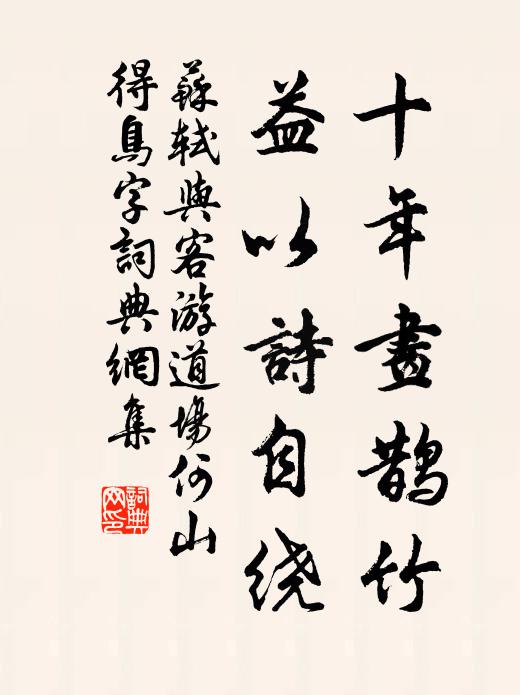 十年畫鵲竹
益以詩自繞
蘇軾與客游道場何山
得鳥字詞典網集
詞典网印